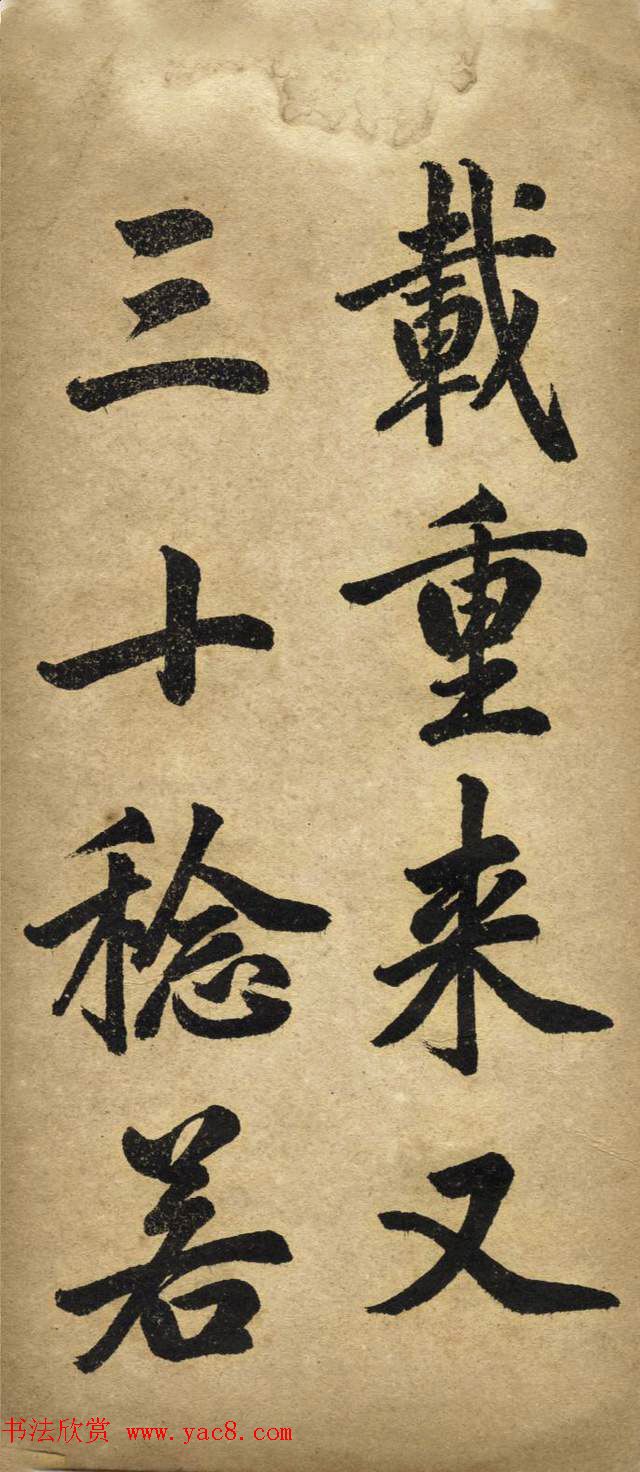 載重来又
三十稔若
书法欣赏 www.yac8.com